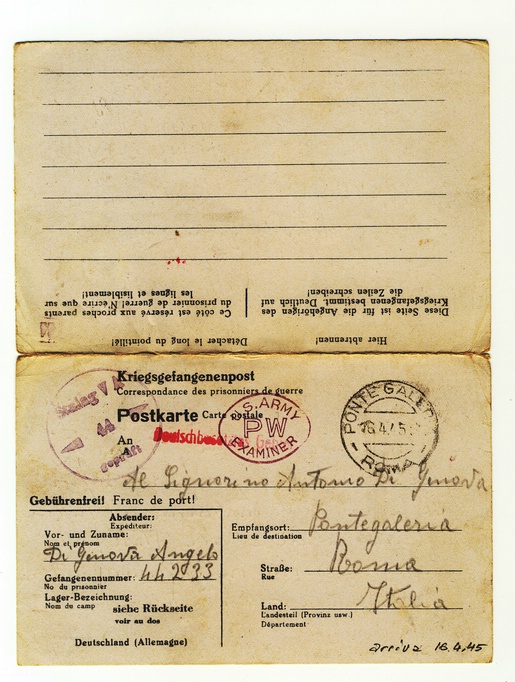 Ce côté est réservé aux proches parents
du prisonnier de guerre! N'écrire que sur
les lignes et lisiblement!
Diese Seite ist für die Angehörigen des
Kriegsgefangenen bestimmt. Deutlich auf
die Zeilen schreiben!
Détacher le long du pointillé!
Hier abtrennen!
Kriegsgefangenenpost
Correspondance des prisonniers de guerre
Postkarte Carte postale
An
A
Stalag V
44
geprüft
U.S. ARMY
PW
EXAMINER
PONTE GALERIA
16.4.45
ROMA
Al Signorino Antonio Di Genova
Gebührenfrei! Franc de port!
Absender:
Expéditeur:
Vor- und Zuname:
Nom et prénom
Di Genova Angelo
Gefangenennummer: 44233
No du prisonnier
Lager-Bezeichnung:
Nom du camp
siehe Rückseite
voir au dos
Deutschland (Allemagne)
Empfangsort: Pontegaleria
Lieu de destination
Roma
Straße:
Rue
Land: Italia
Landesteil (Provinz usw.)
Département
arriva 16.4.45